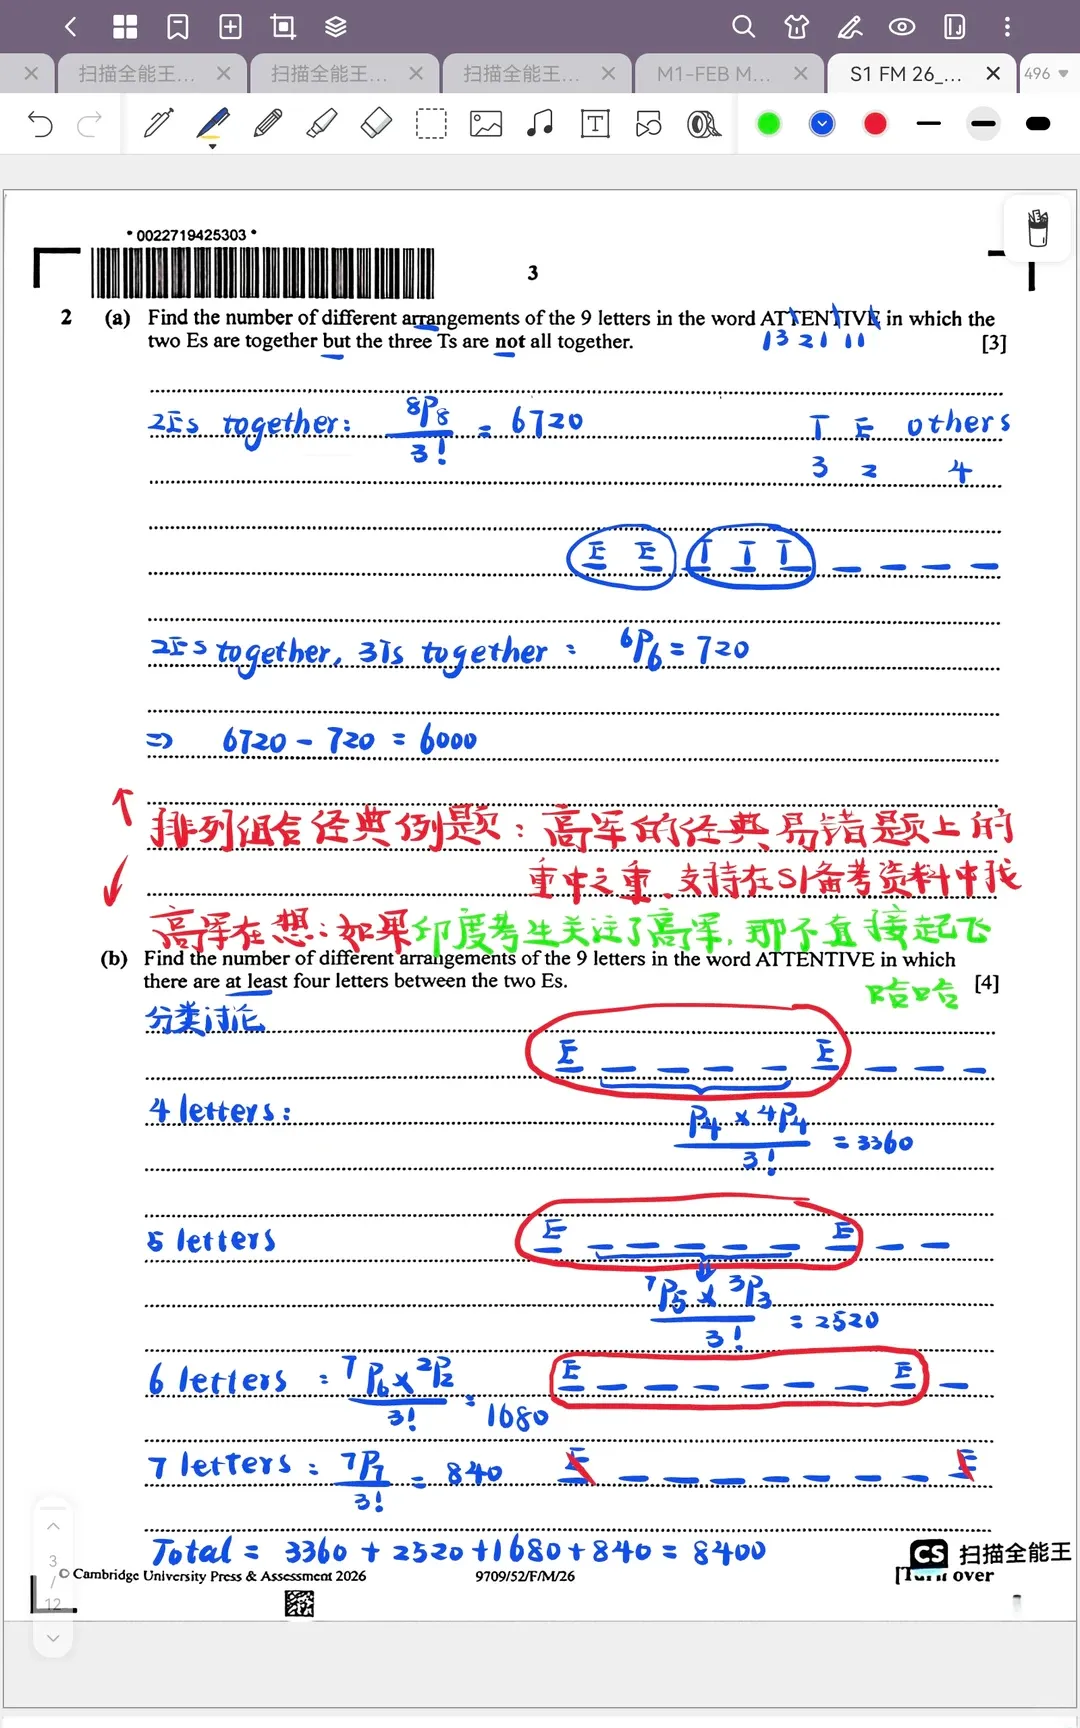 扫描全能王...
扫描全能王...
扫描全能王...
M1-FEB M...
S1 FM 26_...
496
T
* 0022719425303 *
3
2 (a) Find the number of different arrangements of the 9 letters in the word ATTENTIVE in which the
two Es are together but the three Ts are not all together. [3]
1 3 2 1 1 1
2Es together: 8P8 / 3! = 6720
T E others
3 2 4
E E T T T
2Es together, 3Ts together = 6P6 = 720
⇒ 6720 - 720 = 6000
排列组合经典例题：高军的经典易错题上的
重中之重，支持在S1备考资料中找
高军在想：如果印度考生关注了高军，那不直接起飞
哈哈
(b) Find the number of different arrangements of the 9 letters in the word ATTENTIVE in which
there are at least four letters between the two Es. [4]
分类讨论
E E
4 letters:
P4 × 4P4 / 3! = 3360
5 letters
E E
7P5 × 3P3 / 3! = 2520
6 letters = 7P6 × 2P2 / 3! = 1680
E E
7 letters = 7P7 / 3! = 840
E E
Total = 3360 + 2520 + 1680 + 840 = 8400
CS 扫描全能王
3
/
12
© Cambridge University Press & Assessment 2026
9709/52/F/M/26
[Turn over